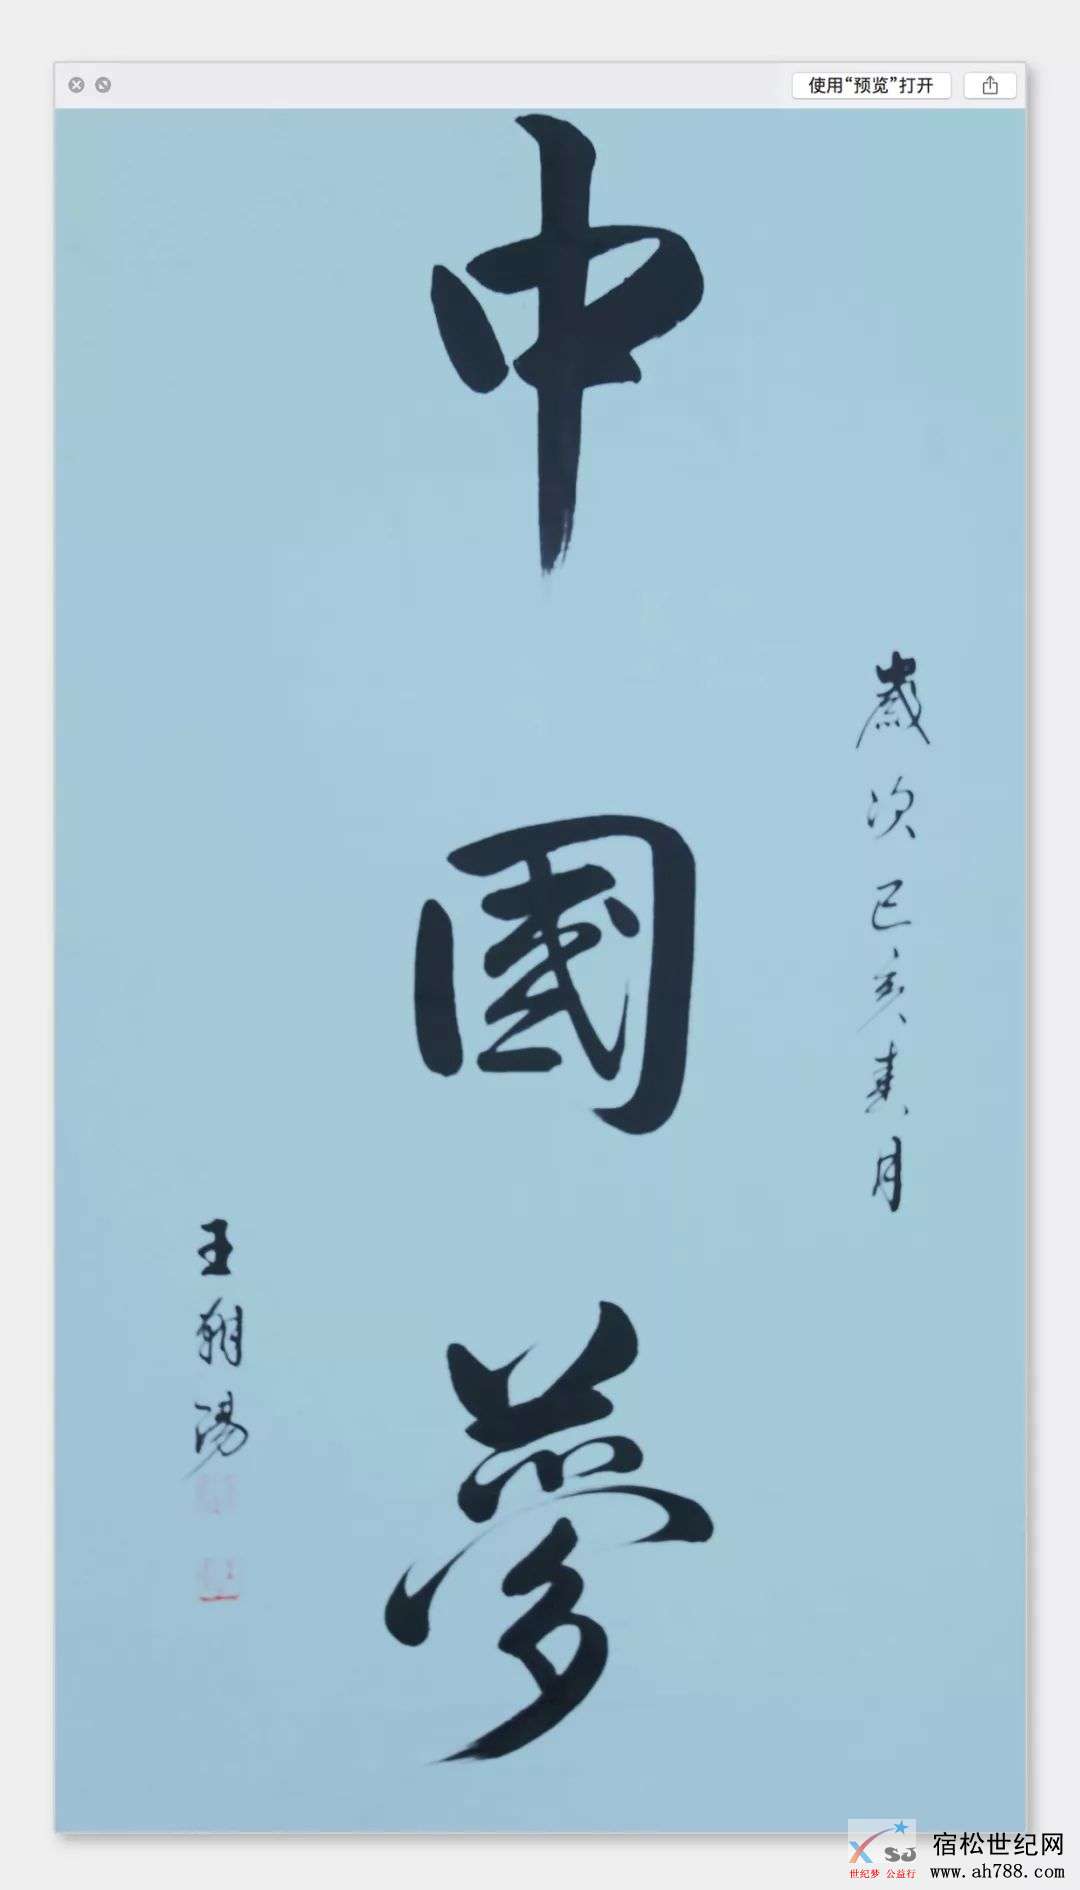 使用“预览”打开
中國夢
歲次己亥春月
王朝陽
XSJ
世纪梦 公益行
宿松世纪网
www.ah788.com